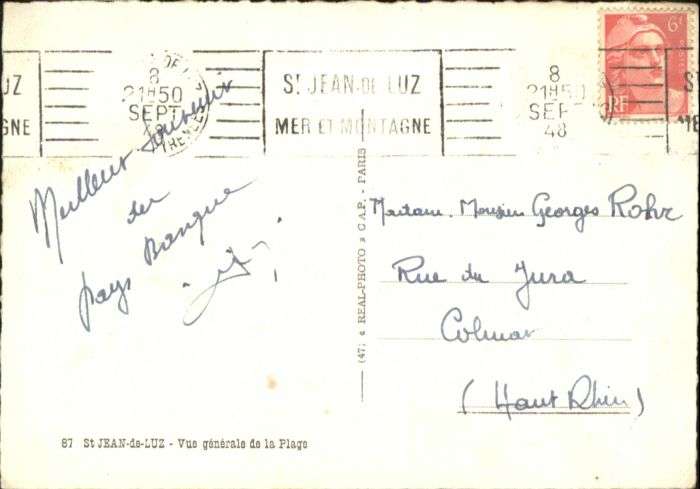 JZ
GNE
8
21H50
SEPT
St JEAN-DE LUZ
MER ET MONTAGNE
8
21H50
SEPT
48
6F
RF
S
ME
Meilleur souvenir
du
pays Basque
(47) « REAL-PHOTO » C.A.P. - PARIS
Madame. Monsieur Georges Rohr
Rue du Jura
Colmar
(Haut Rhin)
87 St JEAN-de-LUZ - Vue générale de la Plage